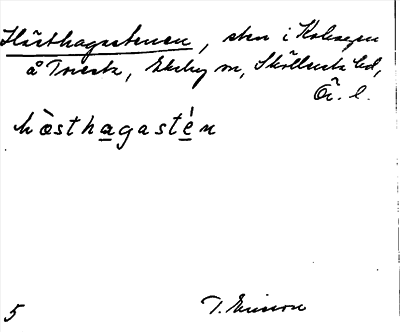 Hästhagastenen, sten i Kolsagen
å Torsta, Ekeby sn, Sköllersta hd,
Ö. l.
hòsthagastén
5 T. Ericsson